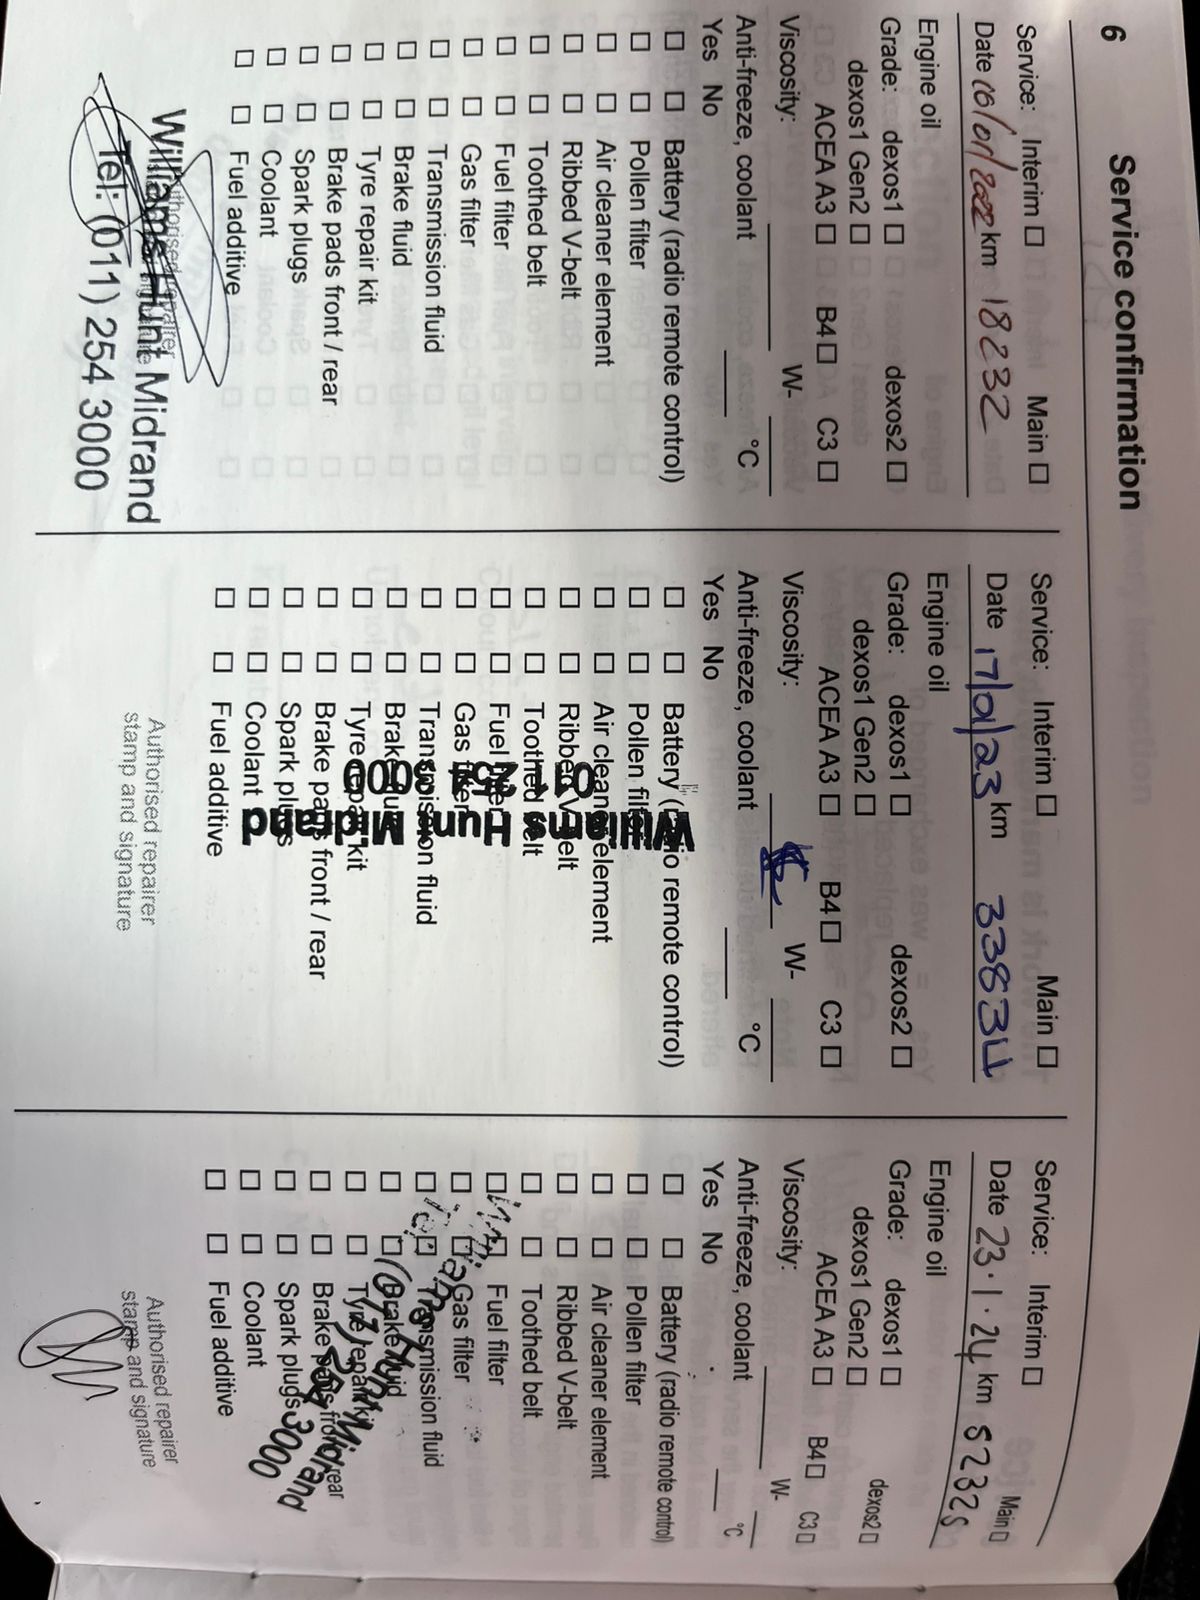 6 Service confirmation
Service: Interim ☐ Main ☐
Date 10/01/2022 km 18232
Engine oil
Grade: dexos1 ☐ dexos2 ☐
dexos1 Gen2 ☐
ACEA A3 ☐ B4 ☐ C3 ☐
Viscosity: W-
Anti-freeze, coolant °C
Yes No
☐ ☐ Battery (radio remote control)
☐ ☐ Pollen filter
☐ ☐ Air cleaner element
☐ ☐ Ribbed V-belt
☐ ☐ Toothed belt
☐ ☐ Fuel filter
☐ ☐ Gas filter
☐ ☐ Transmission fluid
☐ ☐ Brake fluid
☐ ☐ Tyre repair kit
☐ ☐ Brake pads front / rear
☐ ☐ Spark plugs
☐ ☐ Coolant
☐ ☐ Fuel additive
Authorised repairer
Williams Hunt Midrand
Tel: (011) 254 3000
Service: Interim ☐ Main ☐
Date 17/01/23 km 33834
Engine oil
Grade: dexos1 ☐ dexos2 ☐
dexos1 Gen2 ☐
ACEA A3 ☐ B4 ☐ C3 ☐
Viscosity: W-
Anti-freeze, coolant °C
Yes No
☐ ☐ Battery (radio remote control)
☐ ☐ Pollen filter
☐ ☐ Air cleaner element
☐ ☐ Ribbed V-belt
☐ ☐ Toothed belt
☐ ☐ Fuel filter
☐ ☐ Gas filter
☐ ☐ Transmission fluid
☐ ☐ Brake fluid
☐ ☐ Tyre repair kit
☐ ☐ Brake pads front / rear
☐ ☐ Spark plugs
☐ ☐ Coolant
☐ ☐ Fuel additive
Authorised repairer
stamp and signature
Service: Interim ☐ Main ☐
Date 23.1.24 km 52325
Engine oil
Grade: dexos1 ☐ dexos2 ☐
dexos1 Gen2 ☐
ACEA A3 ☐ B4 ☐ C3 ☐
Viscosity: W-
Anti-freeze, coolant °C
Yes No
☐ ☐ Battery (radio remote control)
☐ ☐ Pollen filter
☐ ☐ Air cleaner element
☐ ☐ Ribbed V-belt
☐ ☐ Toothed belt
☐ ☐ Fuel filter
☐ ☐ Gas filter
☐ ☐ Transmission fluid
☐ ☐ Brake fluid
☐ ☐ Tyre repair kit
☐ ☐ Brake pads front / rear
☐ ☐ Spark plugs
☐ ☐ Coolant
☐ ☐ Fuel additive
Hunt Midrand
(011) 254 3000
Authorised repairer
stamp and signature